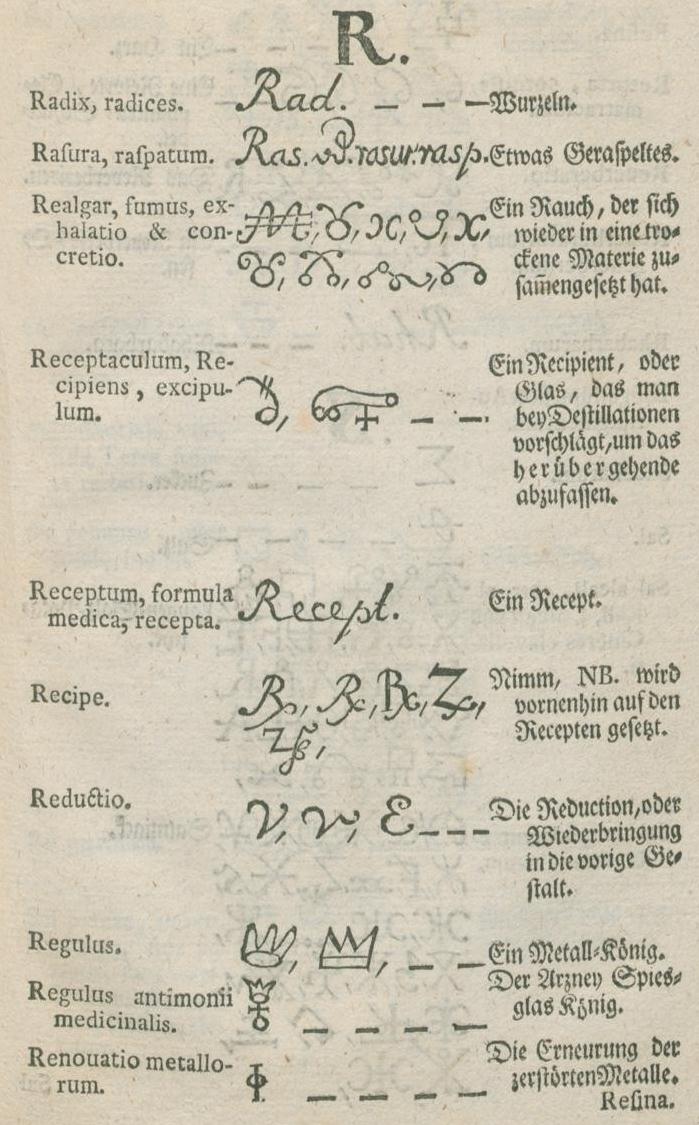 R.
Radix, radices. Rad. — — — Wurzeln.
Rasura, raspatum. Ras. rasur. rasp. Etwas Geraspeltes.
Realgar, fumus, ex- Ein Rauch, der sich
halatio & con- wieder in eine tro-
cretio. ckene Materie zu-
sam̅engesetzt hat.
Receptaculum, Re- Ein Recipient, oder
cipiens, excipu- Glas, das man
lum. — — bey Destillationen
vorschlägt, um das
herübergehende
abzufassen.
Receptum, formula Recept. Ein Recept.
medica, recepta.
Recipe. Nimm, NB. wird
vornenhin auf den
Recepten gesetzt.
Reductio. — — — Die Reduction, oder
Wiederbringung
in die vorige Ge-
stalt.
Regulus. — — Ein Metall-König.
Regulus antimonii Der Arzney Spies-
medicinalis. — — — — glas König.
Renouatio metallo- Die Erneurung der
rum. — — — — zerstörten Metalle.
Resina.